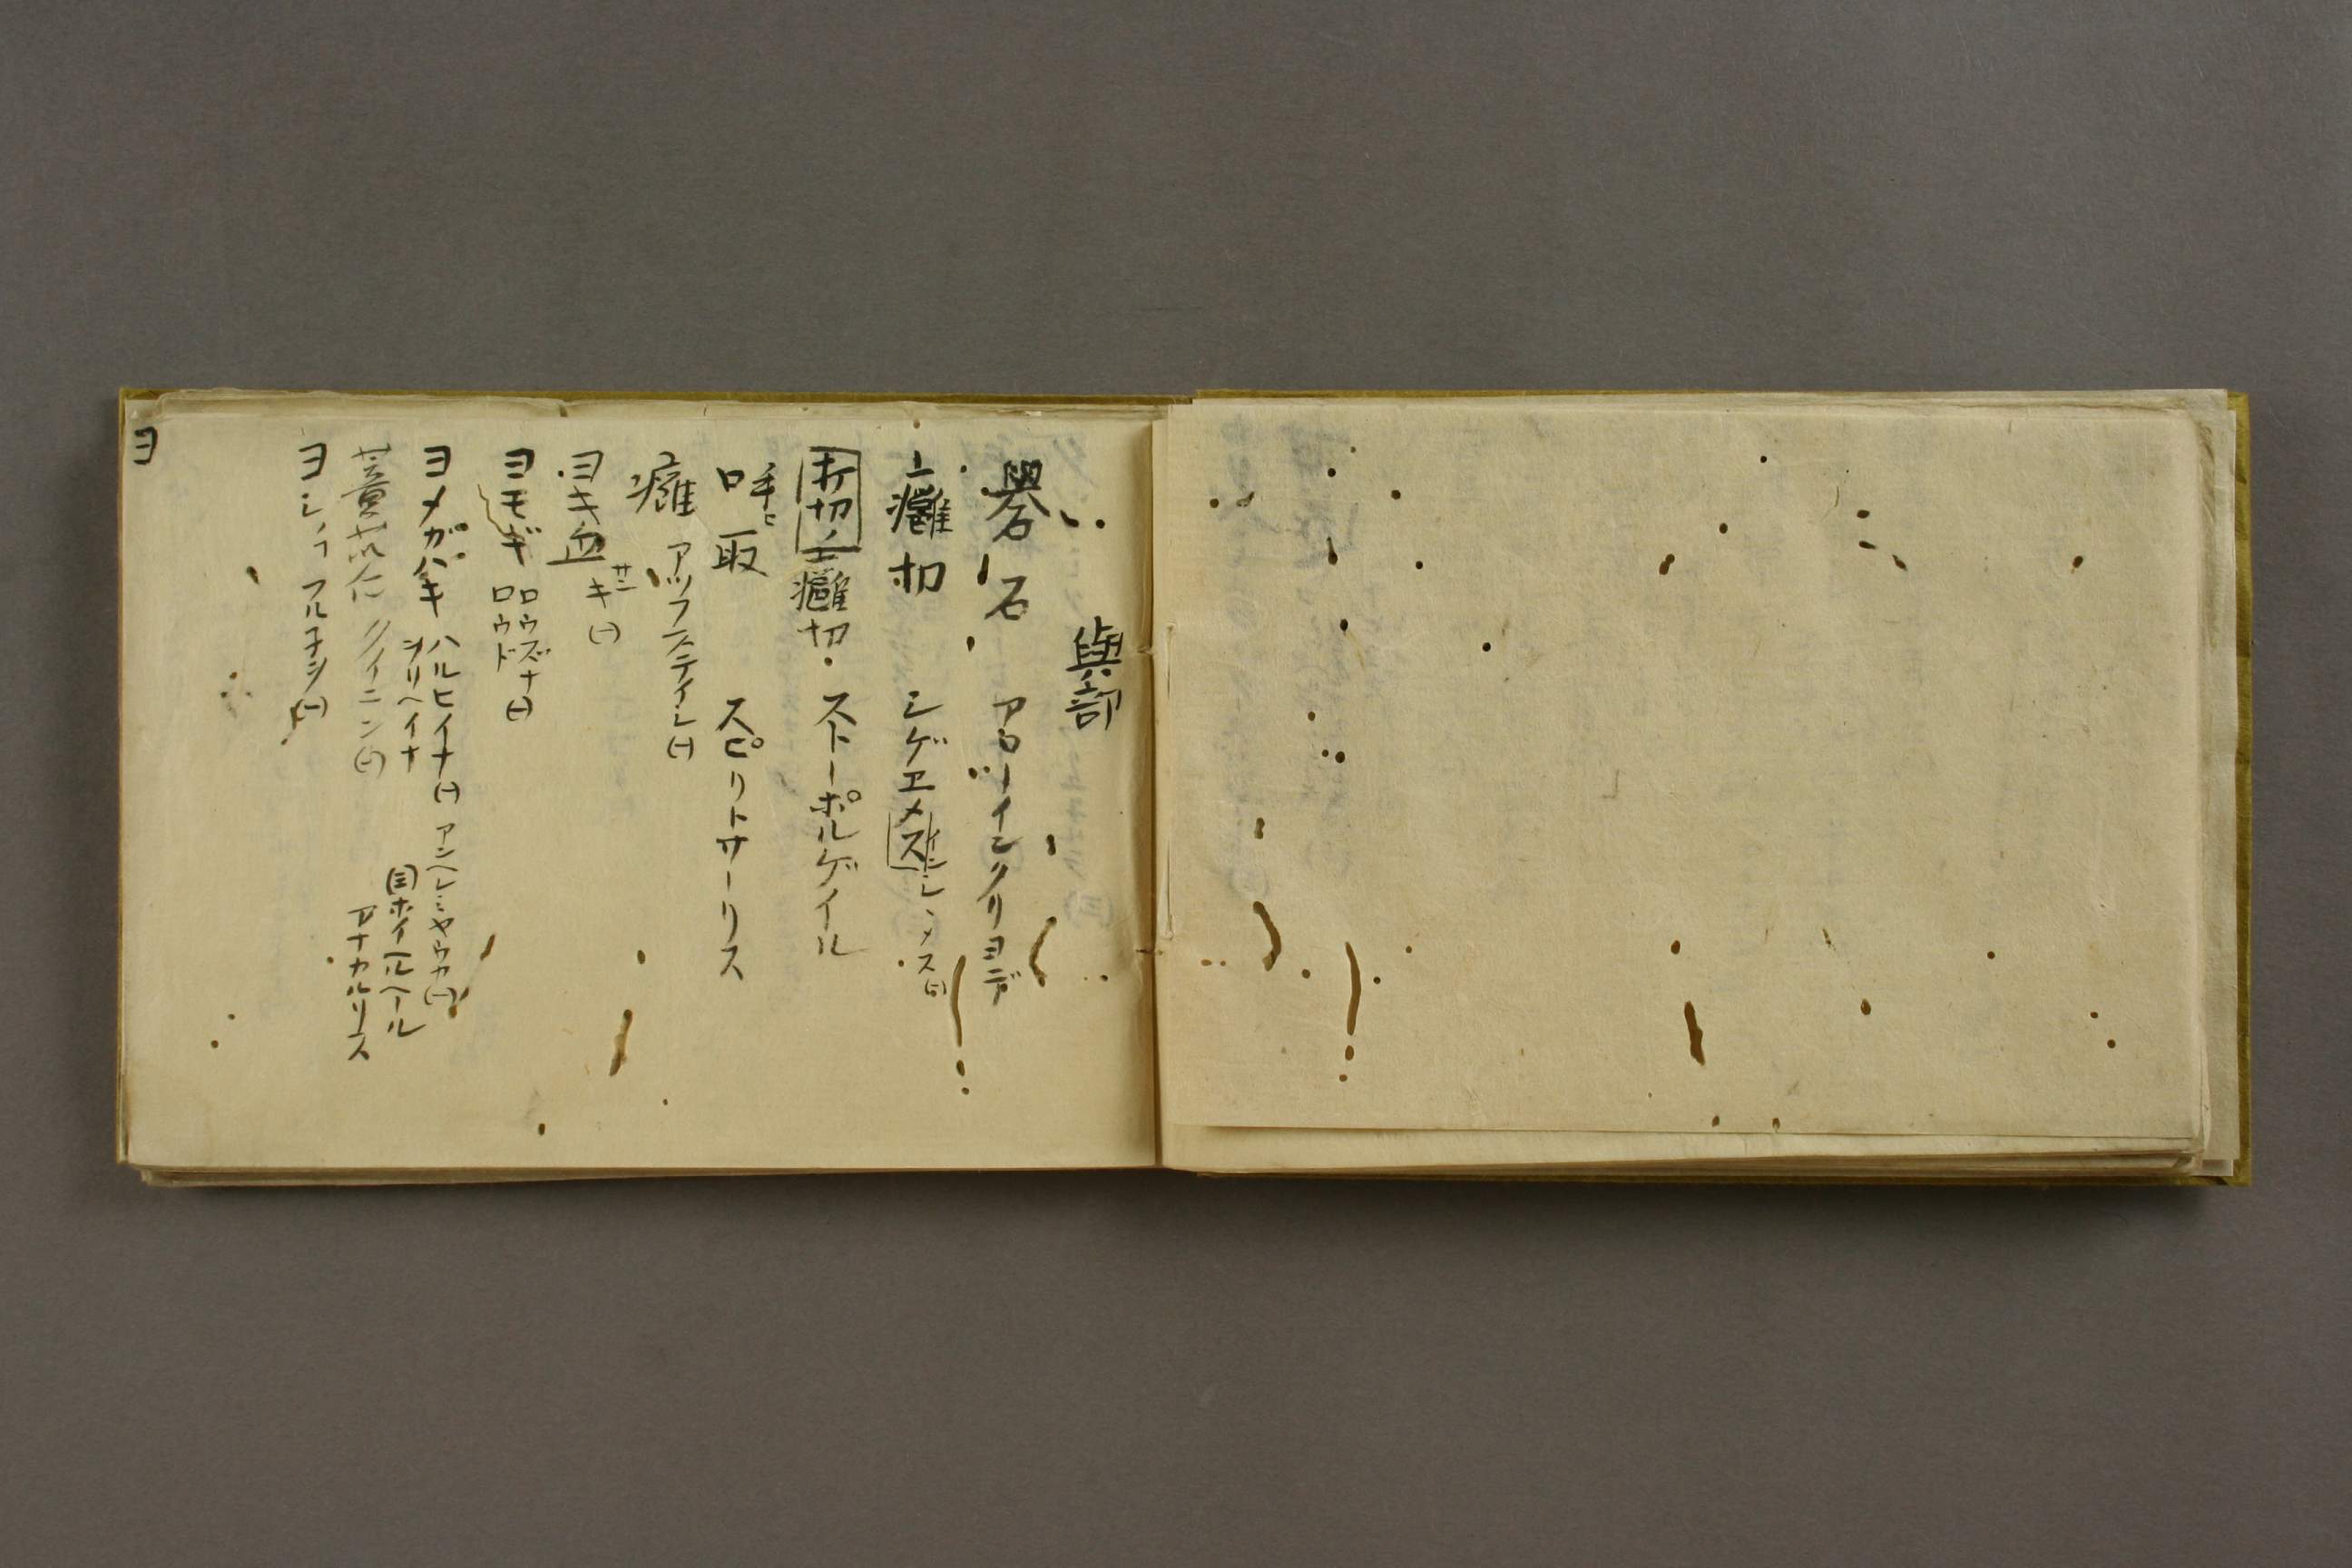 與部
礜石 アロイインクリヨデ
癰切 シゲヱメス
癰切 ストーポルゲイル
呼取 スピリトサーリス
癰 アッフステイレ(一)
ヨキ血 サンキ(一)
ヨモギ ロウズナ(一) ロウド
ヨメガハギ ハルヒイナ(一) シリヘイナ アンヘレミヤウカ(一)
(三)ホイヘルヘール アナカルリス
クイニン(一)
ヨシ フルヱンシ(一)
ヨ